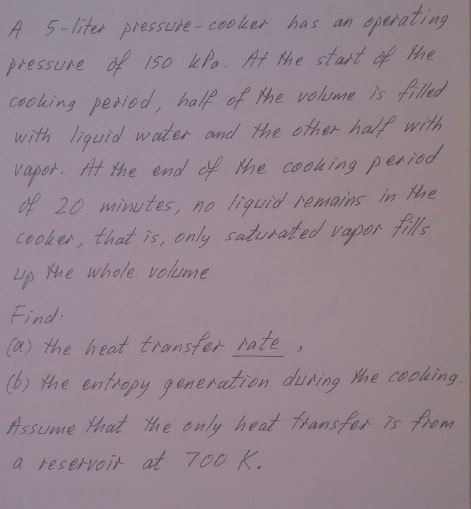 A 5-liter pressure-cooker has an operating
pressure of 150 kPa. At the start of the
cooking period, half of the volume is filled
with liquid water and the other half with
vapor. At the end of the cooking period
of 20 minutes, no liquid remains in the
cooker, that is, only saturated vapor fills
up the whole volume.
Find:
(a) the heat transfer rate,
(b) the entropy generation during the cooking.
Assume that the only heat transfer is from
a reservoir at 700 K.